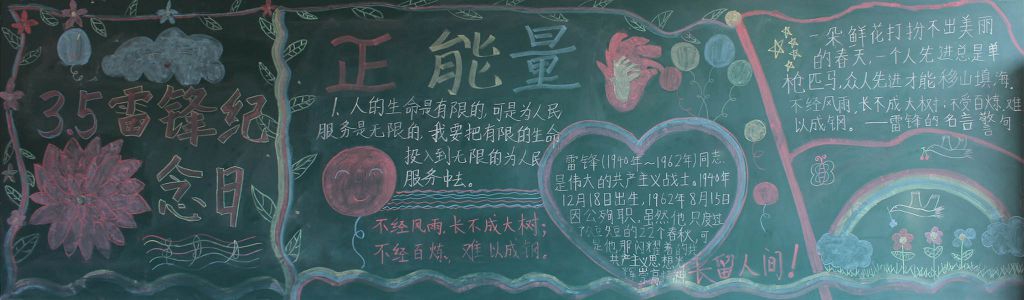 3.5雷锋纪
念日
正能量
1.人的生命是有限的,可是为人民
服务是无限的,我要把有限的生命
投入到无限的为人民
服务中去。
不经风雨,长不成大树;
不经百炼,难以成钢。
雷锋(1940年~1962年)同志,
是伟大的共产主义战士。1940年
12月18日出生,1962年8月15日
因公殉职,虽然他只度过
短的22个春秋,可
是他那闪耀着的共
产主义思想光
长留人间!
一朵鲜花打扮不出美丽
的春天,一个人先进总是单
枪匹马,众人先进才能移山填海
不经风雨,长不成大树;不受百炼,难
以成钢。——雷锋的名言警句